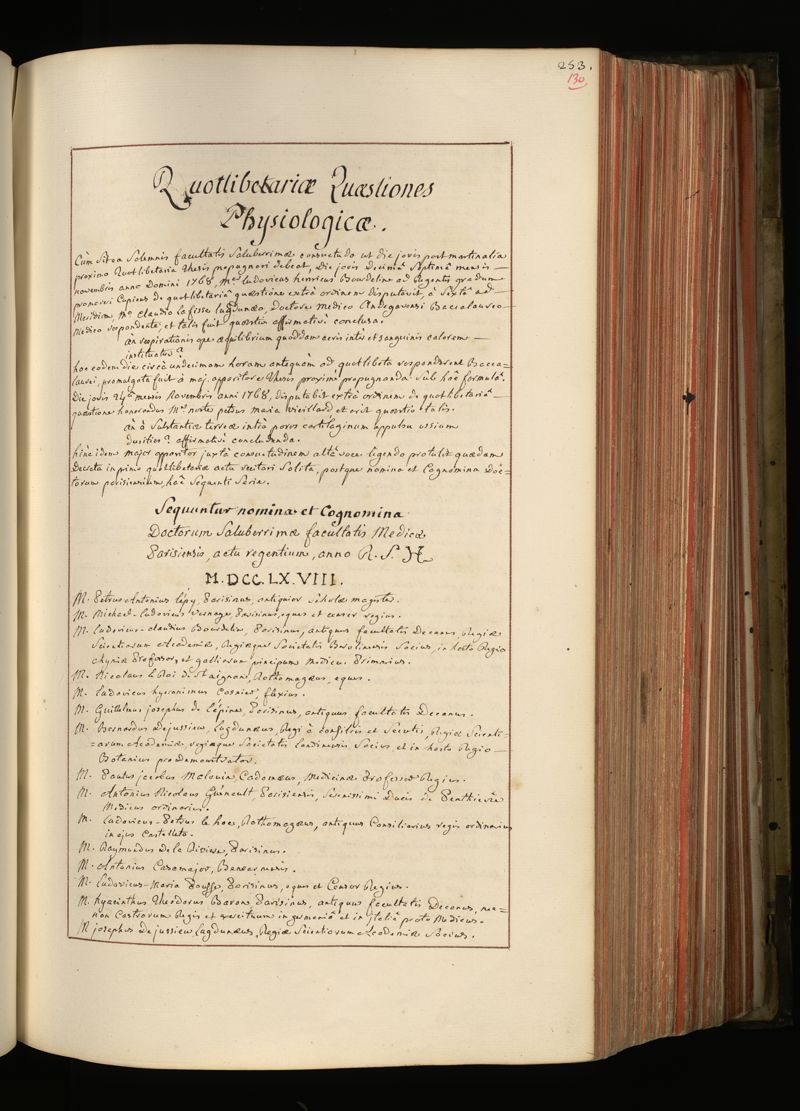 253.
130
Quotlibetariæ Quæstiones
Physiologicæ.
Cùm Sit ea Solemnis facultatis Saluberrimæ consuetudo ut die jovis post martinalia
proximo Quotlibetaria thesis propugnari debeat, Die jovis decimâ Septimâ mensis
novembris anno Domini 1768, Mer ludovicus henricus Bourdelin ad Regentis gradum
promoveri Cupiens de quotlibetariâ quæstione extrà ordinem disputavit, à Sextâ ad
Meridiem, Mo Claudio la fisse lugdunæo, Doctore Medico Andegavensi Baccalaureo
Medico respondente, et talis fuit quæstio affirmativè conclusa.
án respirationis ope æquilibrium quoddam aeris inter et sanguinis calorem
instituatur?
hac eâdem die circà undecimam horam antequàm ad quotlibeta responderent Bacca=
laurei, promulgata fuit à maj. appositore thesis proximè propugnanda Sub hâc formulâ.
Die jovis 24â mensis Novembris anni 1768, disputabit extrà ordinem de quotlibetariâ
quæstione honorandus Mer noster petrus maria vieillard et erit quæstio talis.
án à Substantiæ terreæ intrà poros cartilaginum appulsu ossium
durities? affirmativè concludenda.
hinc idem major appositor juxtà consuetudinem altâ voce legendo protulit quædam
Decreta in primo quotlibetariæ actu recitari Solita, postque nomina et Cognomina Doc=
torum parisiensium, hâc Sequenti Serie.
Sequuntur nomina et Cognomina
Doctorum Saluberrimæ facultatis Medicæ
Parisiensis, actu regentium, anno R. S. H
M. DCC. LX. VIII.
M. Petrus Antonius Lépy, Parisinus, antiquior Scholæ magister.
M. Michael-Ludovicus Vernage, Parisinus, eques et censor regius.
M. Ludovicus-claudius Bourdelin, Parisinus, antiquus facultatis Decanus, Regiæ
Scientiarum Academiæ, Regiæque Societatis Berolinensis Socius, in horto Regio
chymiæ Professor, et galliarum principum medicus Primarius.
M. Nicolaus L. Roi de St aignan, Rothomagæus, eques.
M. Ludovicus hyeronimus Cosnier, flexius.
M. Guillelmus josephus de l'épine, Parisinus, antiquus facultatis Decanus.
M. Bernardus Dejussieu, Lugdunæus, Regi à Consiliis et Secretis, Regiæ Scienti=
=arum Academiæ, regiæque Societatis Londinensis Socius, et in horto Regio
Botanicus prodemonstrator.
M. Paulus jacobus Malouin, Cadomæus, Medicinæ Professor Regius.
M. Antonius Nicolaus Guenault, Parisiensis, Serenissimi Ducis de Penthievre
Medicus ordinarius.
M. Ludovicus-Petrus le hoc, Rothomagæus, antiquus Consiliarius regis ordinarius
in ejus Castelleto.
M. Raymundus De la Riviere, Parisinus.
M. Antonius Casamajor, Benearnensis.
M. Ludovicus-Maria Pousse, Parisinus, eques et Censor Regius.
M. hyacinthus Theodorus Baron, Parisinus, antiquus facultatis Decanus, nec=
non Castrorum Regis et exercituum in germaniâ et in Italiâ proto Medicus.
M josephus De jussieu Lugdunæus, Regiæ Scientiarum Academiæ Socius.